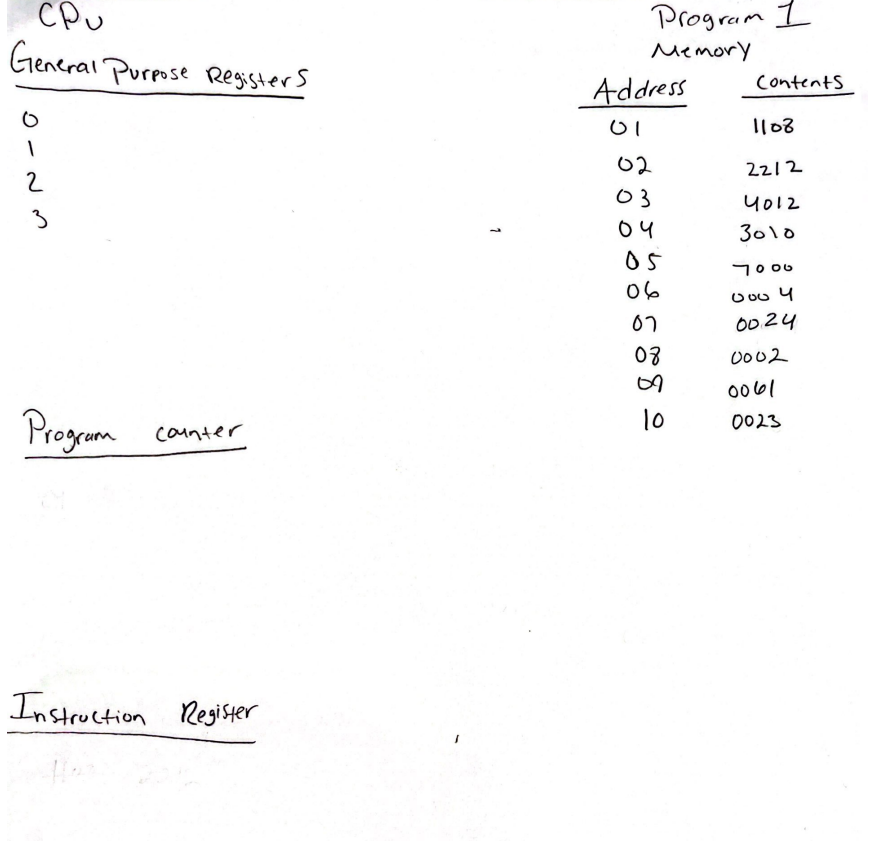 CPU
General Purpose Registers
0
1
2
3
Program counter
Instruction Register
Program 1
Memory
Address Contents
01 1108
02 2212
03 4012
04 3010
05 7000
06 0004
07 0024
08 0002
09 0061
10 0023